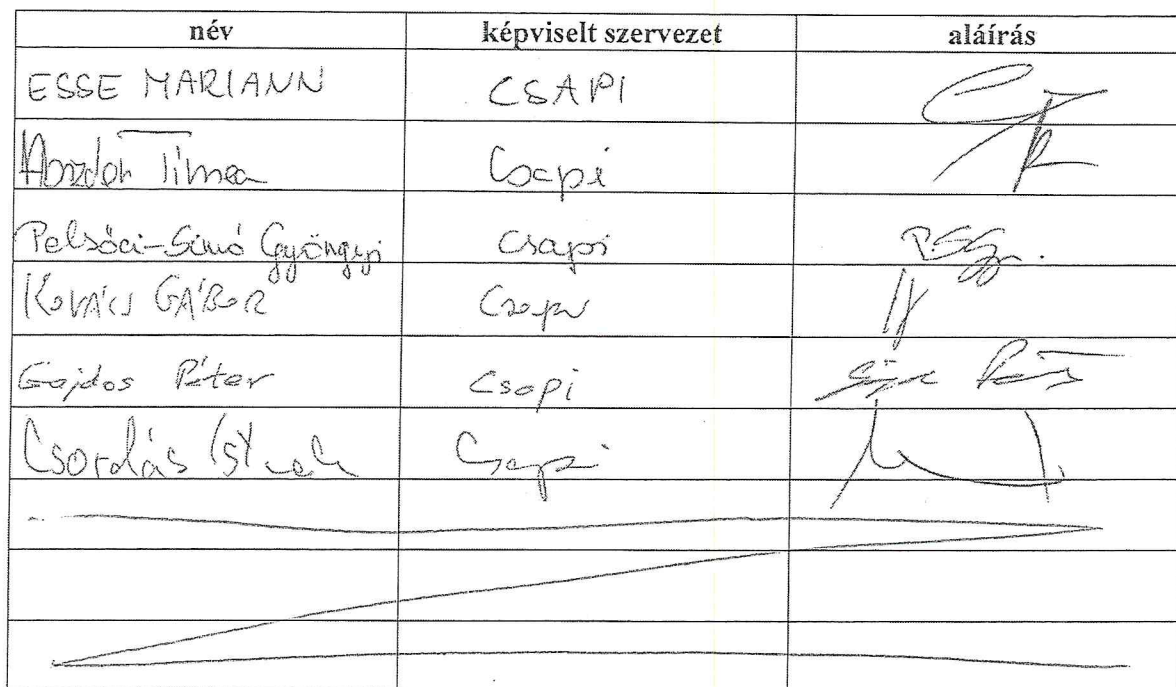 név képviselt szervezet aláírás
ESSE MARIANN CSAPI
Tímea Csapi
Pelsőci-Simó Gyöngyi Csapi P.SGy.
KOVÁCS GÁBOR Csapi
Gajdos Péter Csapi
Csordás István Csapi